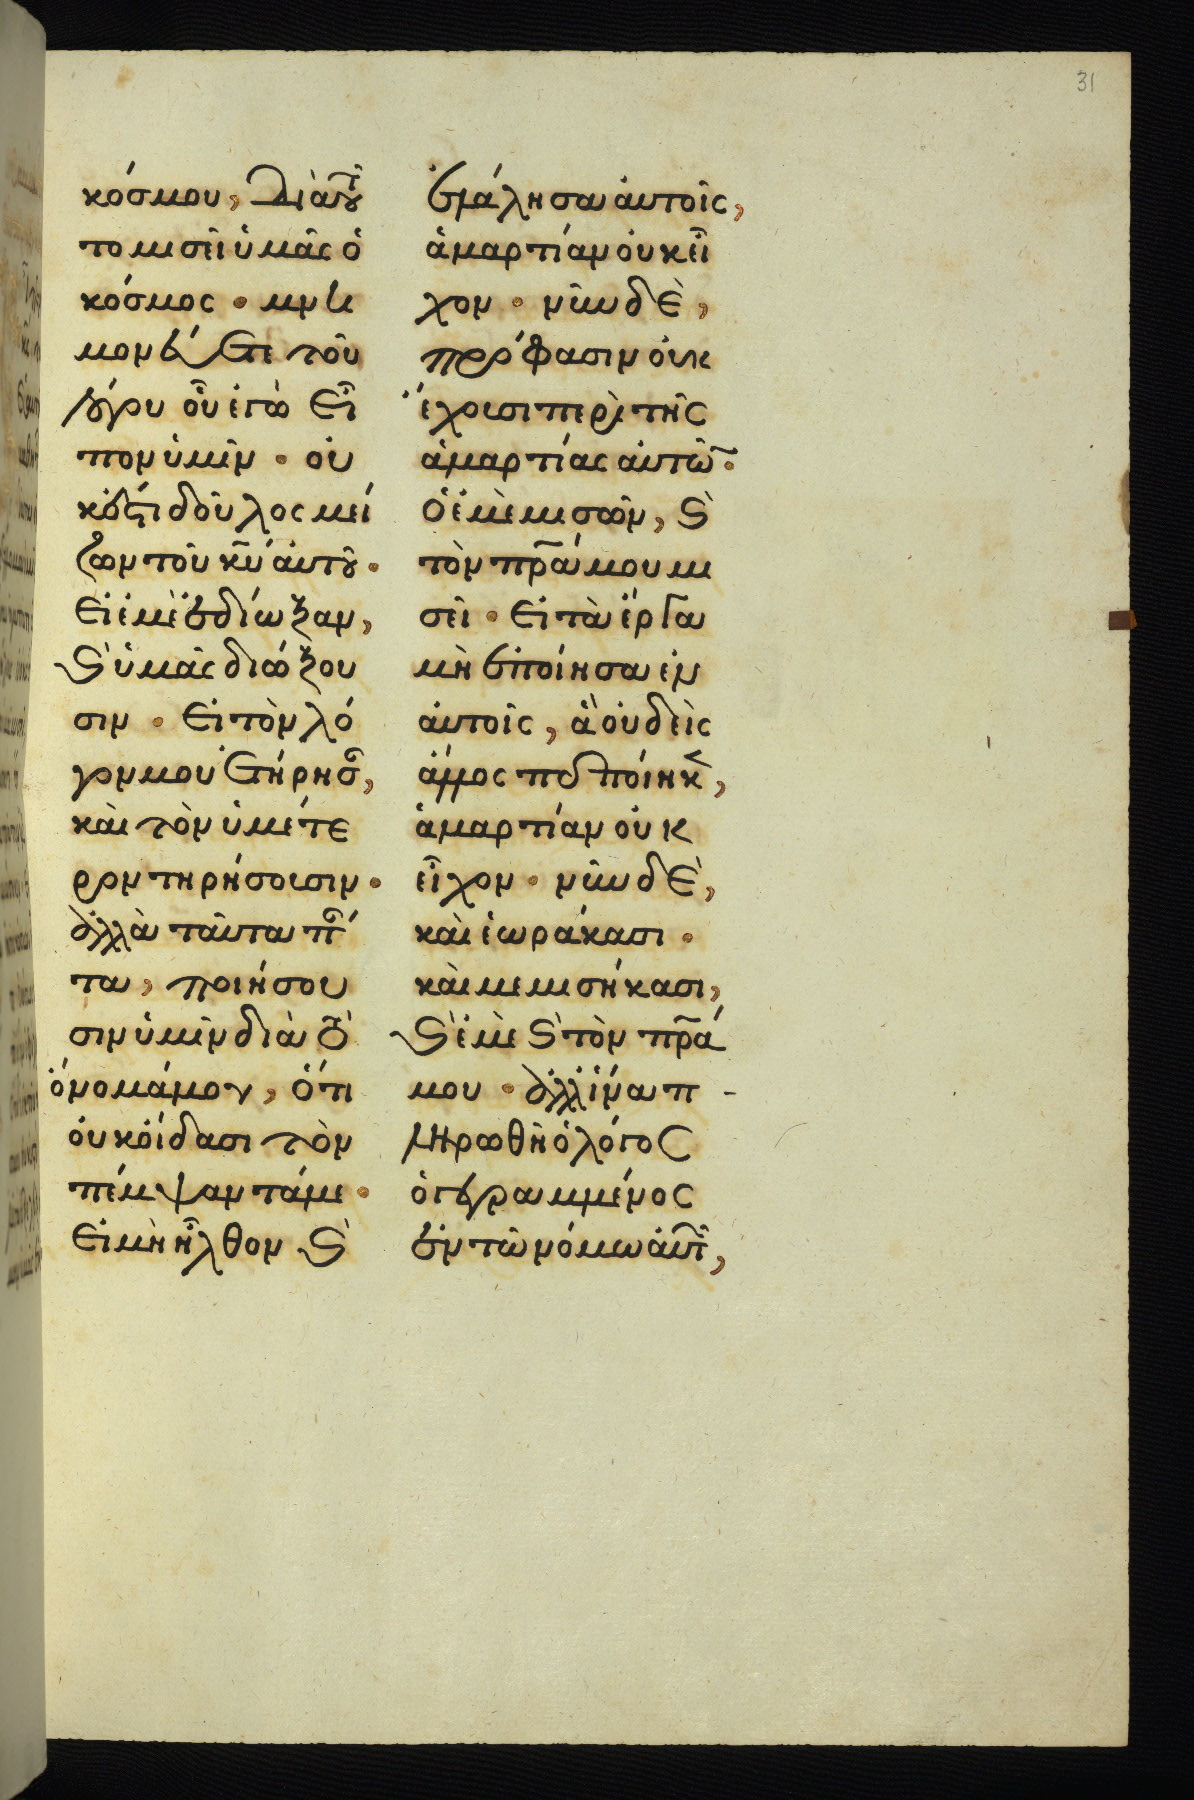 31
κόσμου, διὰ τοῦ
το μισεῖ ὑμᾶς ὁ
κόσμος · μνη
μονεύετε τοῦ
λόγου οὗ ἐγὼ εἶ
πον ὑμῖν · οὐ
κ ἔστι δοῦλος μεί
ζων τοῦ κῦ αὐτοῦ ·
εἰ ἐμὲ ἐδίωξαν,
καὶ ὑμᾶς διώξου
σιν · εἰ τὸν λό
γον μου ἐτήρησαν,
καὶ τὸν ὑμέτε
ρον τηρήσουσιν ·
ἀλλὰ ταῦτα πάν
τα, ποιήσου
σιν ὑμῖν διὰ τὸ
ὄνομά μου, ὅτι
οὐκ οἴδασι τὸν
πέμψαντά με ·
εἰ μὴ ἦλθον καὶ
ἐλάλησα αὐτοῖς,
ἁμαρτίαν οὐκ εἶ
χον · νῦν δὲ,
πρόφασιν οὐκ
ἔχουσι περὶ τῆς
ἁμαρτίας αὐτῶν ·
ὁ ἐμὲ μισῶν, καὶ
τὸν πρᾶ μου μι
σεῖ · εἰ τὰ ἔργα
μὴ ἐποίησα ἐν
αὐτοῖς, ἃ οὐδεὶς
ἄλλος πεποίηκε,
ἁμαρτίαν οὐκ
εἶχον · νῦν δὲ,
καὶ ἑωράκασι ·
καὶ μεμισήκασι,
καὶ ἐμὲ καὶ τὸν πρᾶ
μου · ἀλλ' ἵνα π-
ληρωθῆ ὁ λόγος
ὁ γεγραμμένος
ἐν τῶ νόμω αὐτῶν,